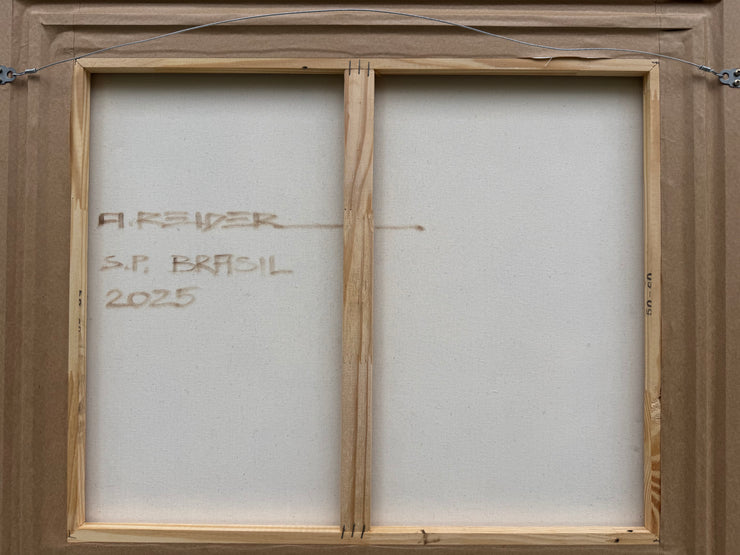 A. REIDER
S.P. BRASIL
2025
50-60